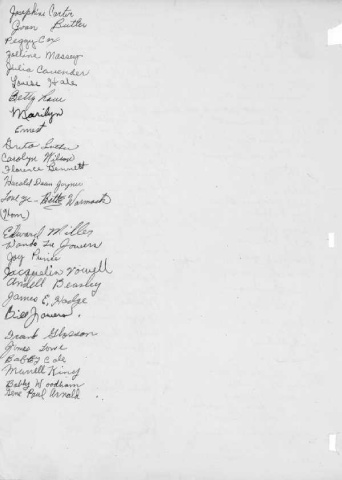 Josephine Carter
Joan Butler
Peggy Cox
Zelline Massey
Julia Cavender
Louise Hale
Betty Lowe
Marilyn
Ernest
Greta
Carolyn Wilson
Florence Bennett
Harold Dean Joyner
Love Ya - Betty Warmack
(Hom)
Edward Miller
Wanda La Jowers
Joy
Jacquelin
Ardell Beasley
James E. Hodge
Bill Flowers.
Frank Glosson
Lowe
Babby Cale
Murrell King
Bobby Woodham
Gene Paul Arnold